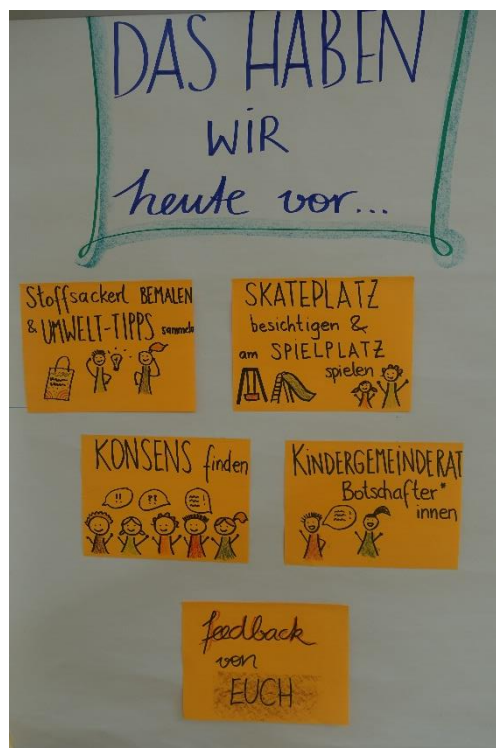 DAS HABEN
WIR
heute vor...
Stoffsackerl BEMALEN
& UMWELT-TIPPS sammeln
SKATEPLATZ
besichtigen &
am SPIELPLATZ
spielen
KONSENS finden
!! ??
KINDERGEMEINDERAT
Botschafter*
innen
feedback
von
EUCH